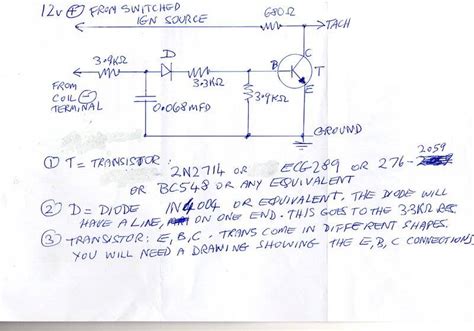 12v ⊕ FROM SWITCHED
IGN SOURCE
680Ω
TACH
3.9KΩ
D
3.3KΩ
B
C
T
E
FROM
COIL ⊖
TERMINAL
0.068MFD
3.9KΩ
GROUND
① T = TRANSISTOR:
2N2714 OR ECG289 OR 276-2059
OR BC548 OR ANY EQUIVALENT
② D = DIODE IN4004 OR EQUIVALENT. THE DIODE WILL
HAVE A LINE, ON ONE END. THIS GOES TO THE 3.3KΩ RES
③ TRANSISTOR: E, B, C. TRANS COME IN DIFFERENT SHAPES.
YOU WILL NEED A DRAWING SHOWING THE E, B, C CONNECTIONS